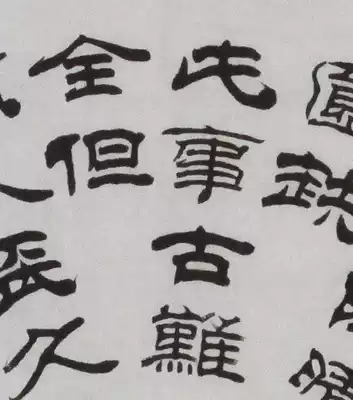 圓缺
此事古難
全但
人長久